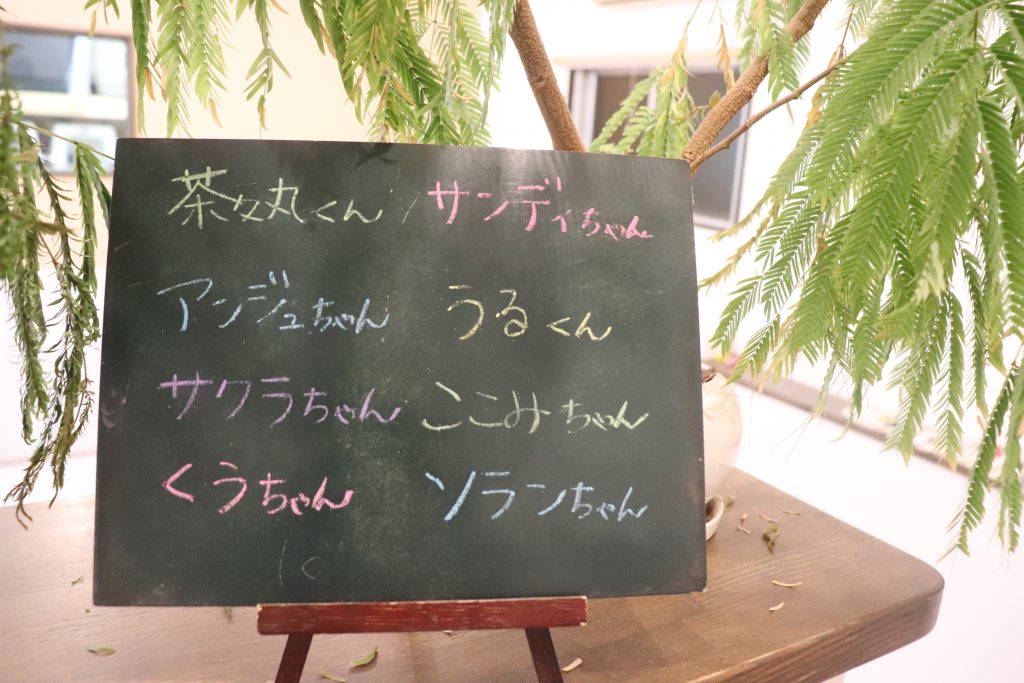 茶々丸くん サンディちゃん
アンジュちゃん うるくん
サクラちゃん ここみちゃん
くうちゃん ソランちゃん